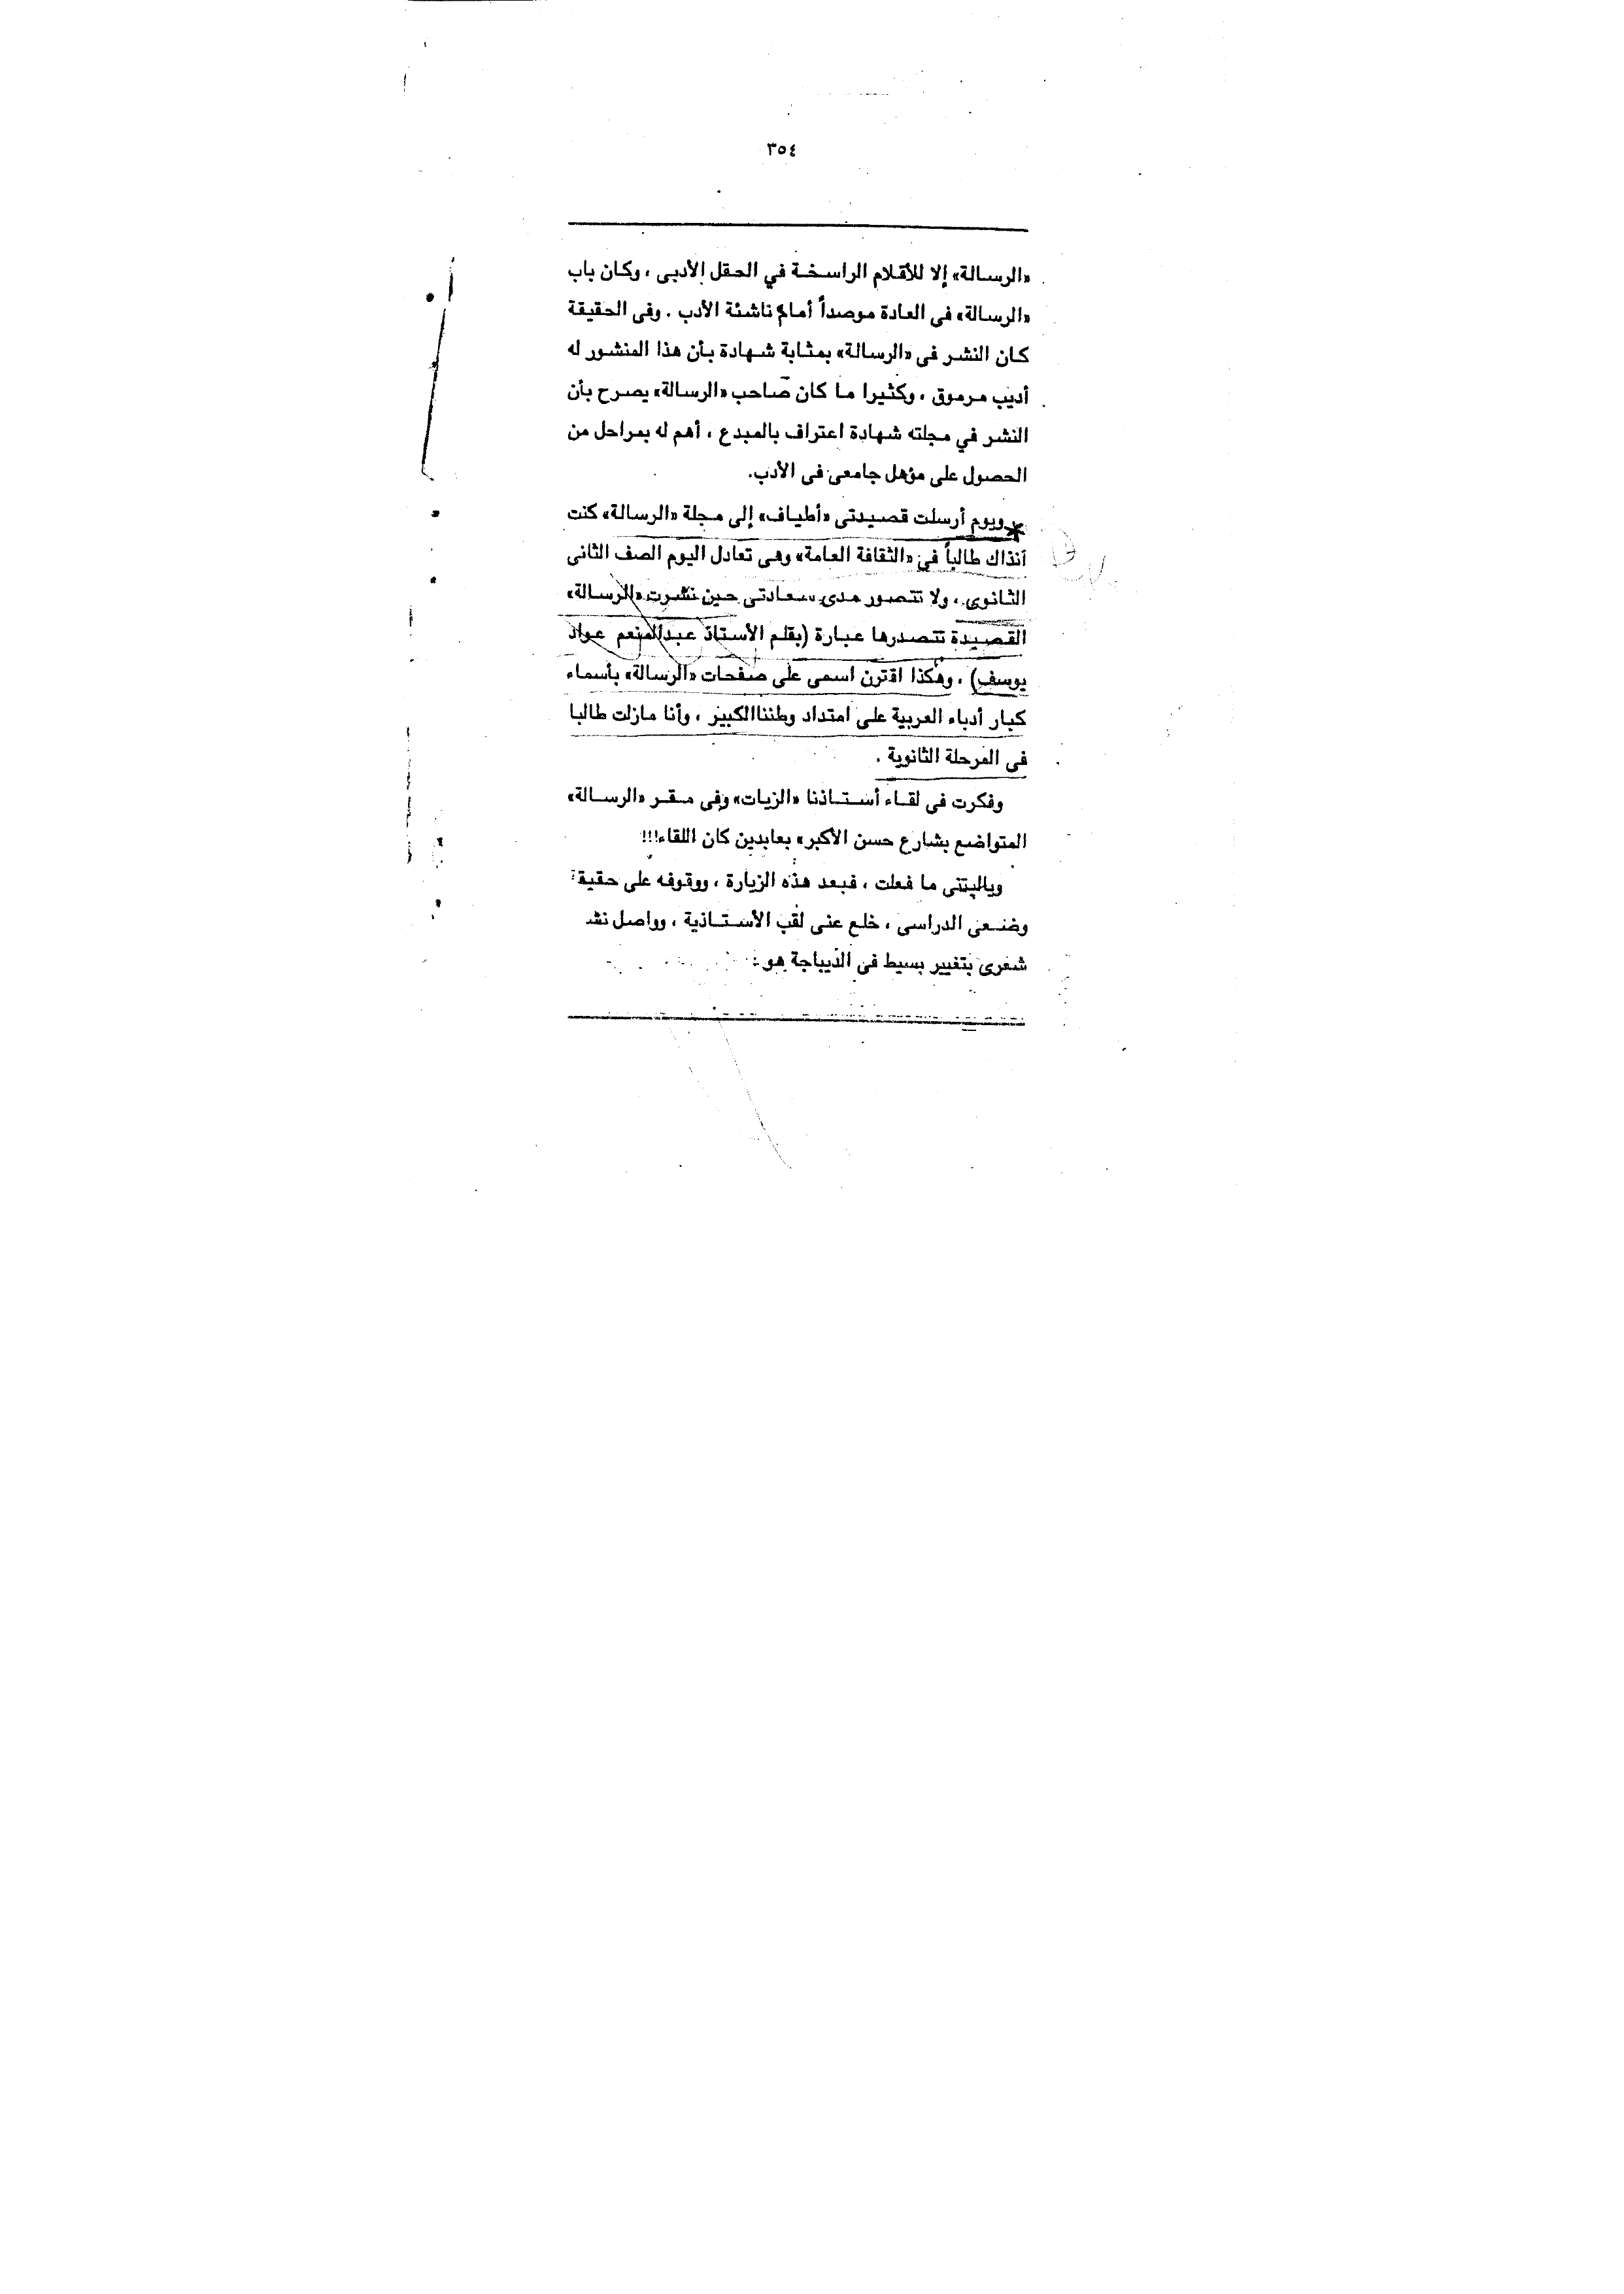 ٣٥٤
«الرسالة» إلا للأقلام الراسخة في الحقل الأدبى ، وكان باب
«الرسالة» فى العادة موصداً أمام ناشئة الأدب . وفى الحقيقة
كان النشر فى «الرسالة» بمثابة شهادة بأن هذا المنشور له
أديب مرموق ، وكثيرا ما كان صاحب «الرسالة» يصرح بأن
النشر في مجلته شهادة اعتراف بالمبدع ، أهم له بمراحل من
الحصول على مؤهل جامعى فى الأدب.
ويوم أرسلت قصيدتى «أطياف» إلى مجلة «الرسالة» كنت
آنذاك طالباً في «الثقافة العامة» وهى تعادل اليوم الصف الثانى
الثانوى ، ولا تتصور مدى سعادتى حين نشرت «الرسالة»
القصيدة تتصدرها عبارة (بقلم الأستاذ عبدالمنعم عواد
يوسف) ، وهكذا اقترن اسمى على صفحات «الرسالة» بأسماء
كبار أدباء العربية على امتداد وطنناالكبير ، وأنا مازلت طالبا
فى المرحلة الثانوية .
وفكرت فى لقاء أستاذنا «الزيات» وفى مقر «الرسالة»
المتواضع بشارع حسن الأكبر» بعابدين كان اللقاء!!!
وياليتنى ما فعلت ، فبعد هذه الزيارة ، ووقوفه على حقيقة
وضعى الدراسى ، خلع عنى لقب الأستاذية ، وواصل نشـ
شعرى بتغيير بسيط فى الديباجة هو :